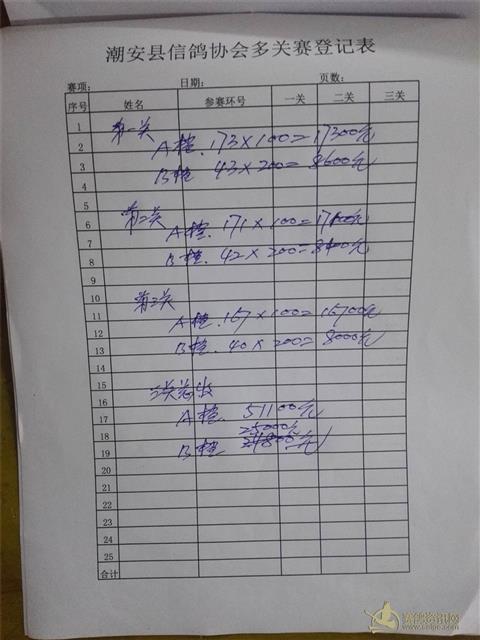 潮安县信鸽协会多关赛登记表
赛项: 日期: 页数:
序号 姓名 参赛环号 一关 二关 三关
1 第一关
2 A档. 173×100=17300元
3 B档 43×200=8600元
4
5
6 第二关
7 A档. 171×100=17100元
8 B档. 42×200=8400元
9
10 第三关
11 A档. 167×100=16700元
12 B档. 40×200=8000元
13
14
15
16 三关总
17 A档. 51100元
18 25000元
19 B档
20
21
22
23
24
25
合计
赛鸽资讯网